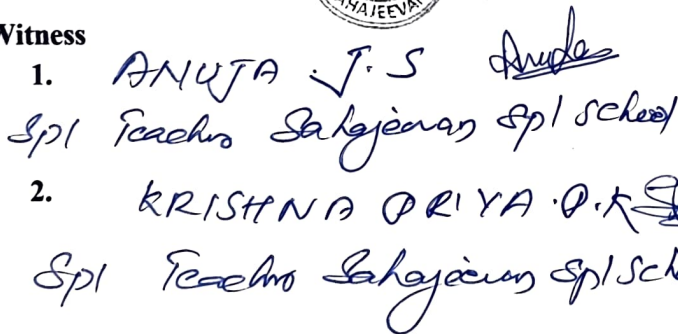 HAJEEVA
Witness
1. ANUJA .J.S Anuja
Spl Teacher Sahajeevan Spl School
2. KRISHNA PRIYA .P.K
Spl Teacher Sahajeevan Spl Sch